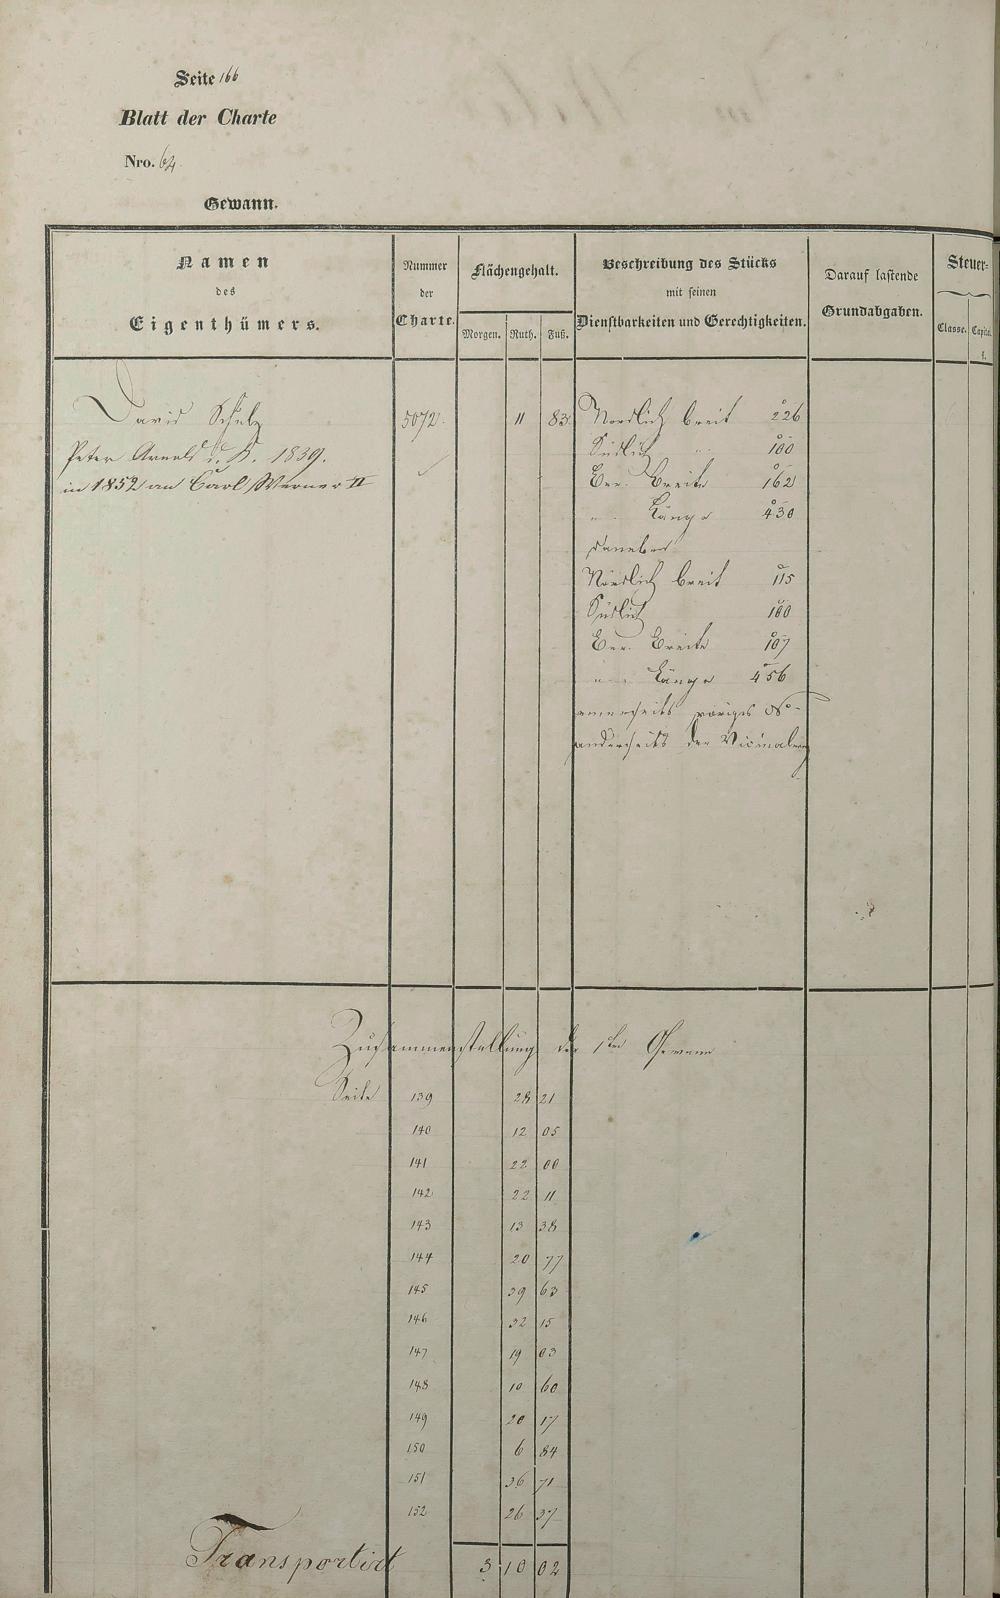 Seite 166
Blatt der Charte
Nro. 64
Gewann.
Namen
des
Eigenthümers.
Nummer
der
Charte.
Flächengehalt.
Morgen. Ruth. Fuß.
Beschreibung des Stücks
mit seinen
Dienstbarkeiten und Gerechtigkeiten.
Darauf lastende
Grundabgaben.
Steuer-
Classe. Capital.
f.
David Schulz 5072. 11 83 Nordlich breit 226
Peter Arnold 1839. Südlich " 100
in 1852 an Carl Werner II Ber. Breite 162
" Länge 430
daneben
Nördlich breit 115
Südlich 100
Ber. Breite 107
" Länge 456
einerseits voriges No
anderseits der Vicinalweg
Zusammenstellung der 1ten Gewann
Seite 139 28 21
140 12 05
141 22 00
142 22 11
143 13 38
144 20 77
145 39 63
146 32 15
147 19 03
148 10 60
149 20 17
150 6 84
151 36 71
152 26 37
Transportirt 3 10 02